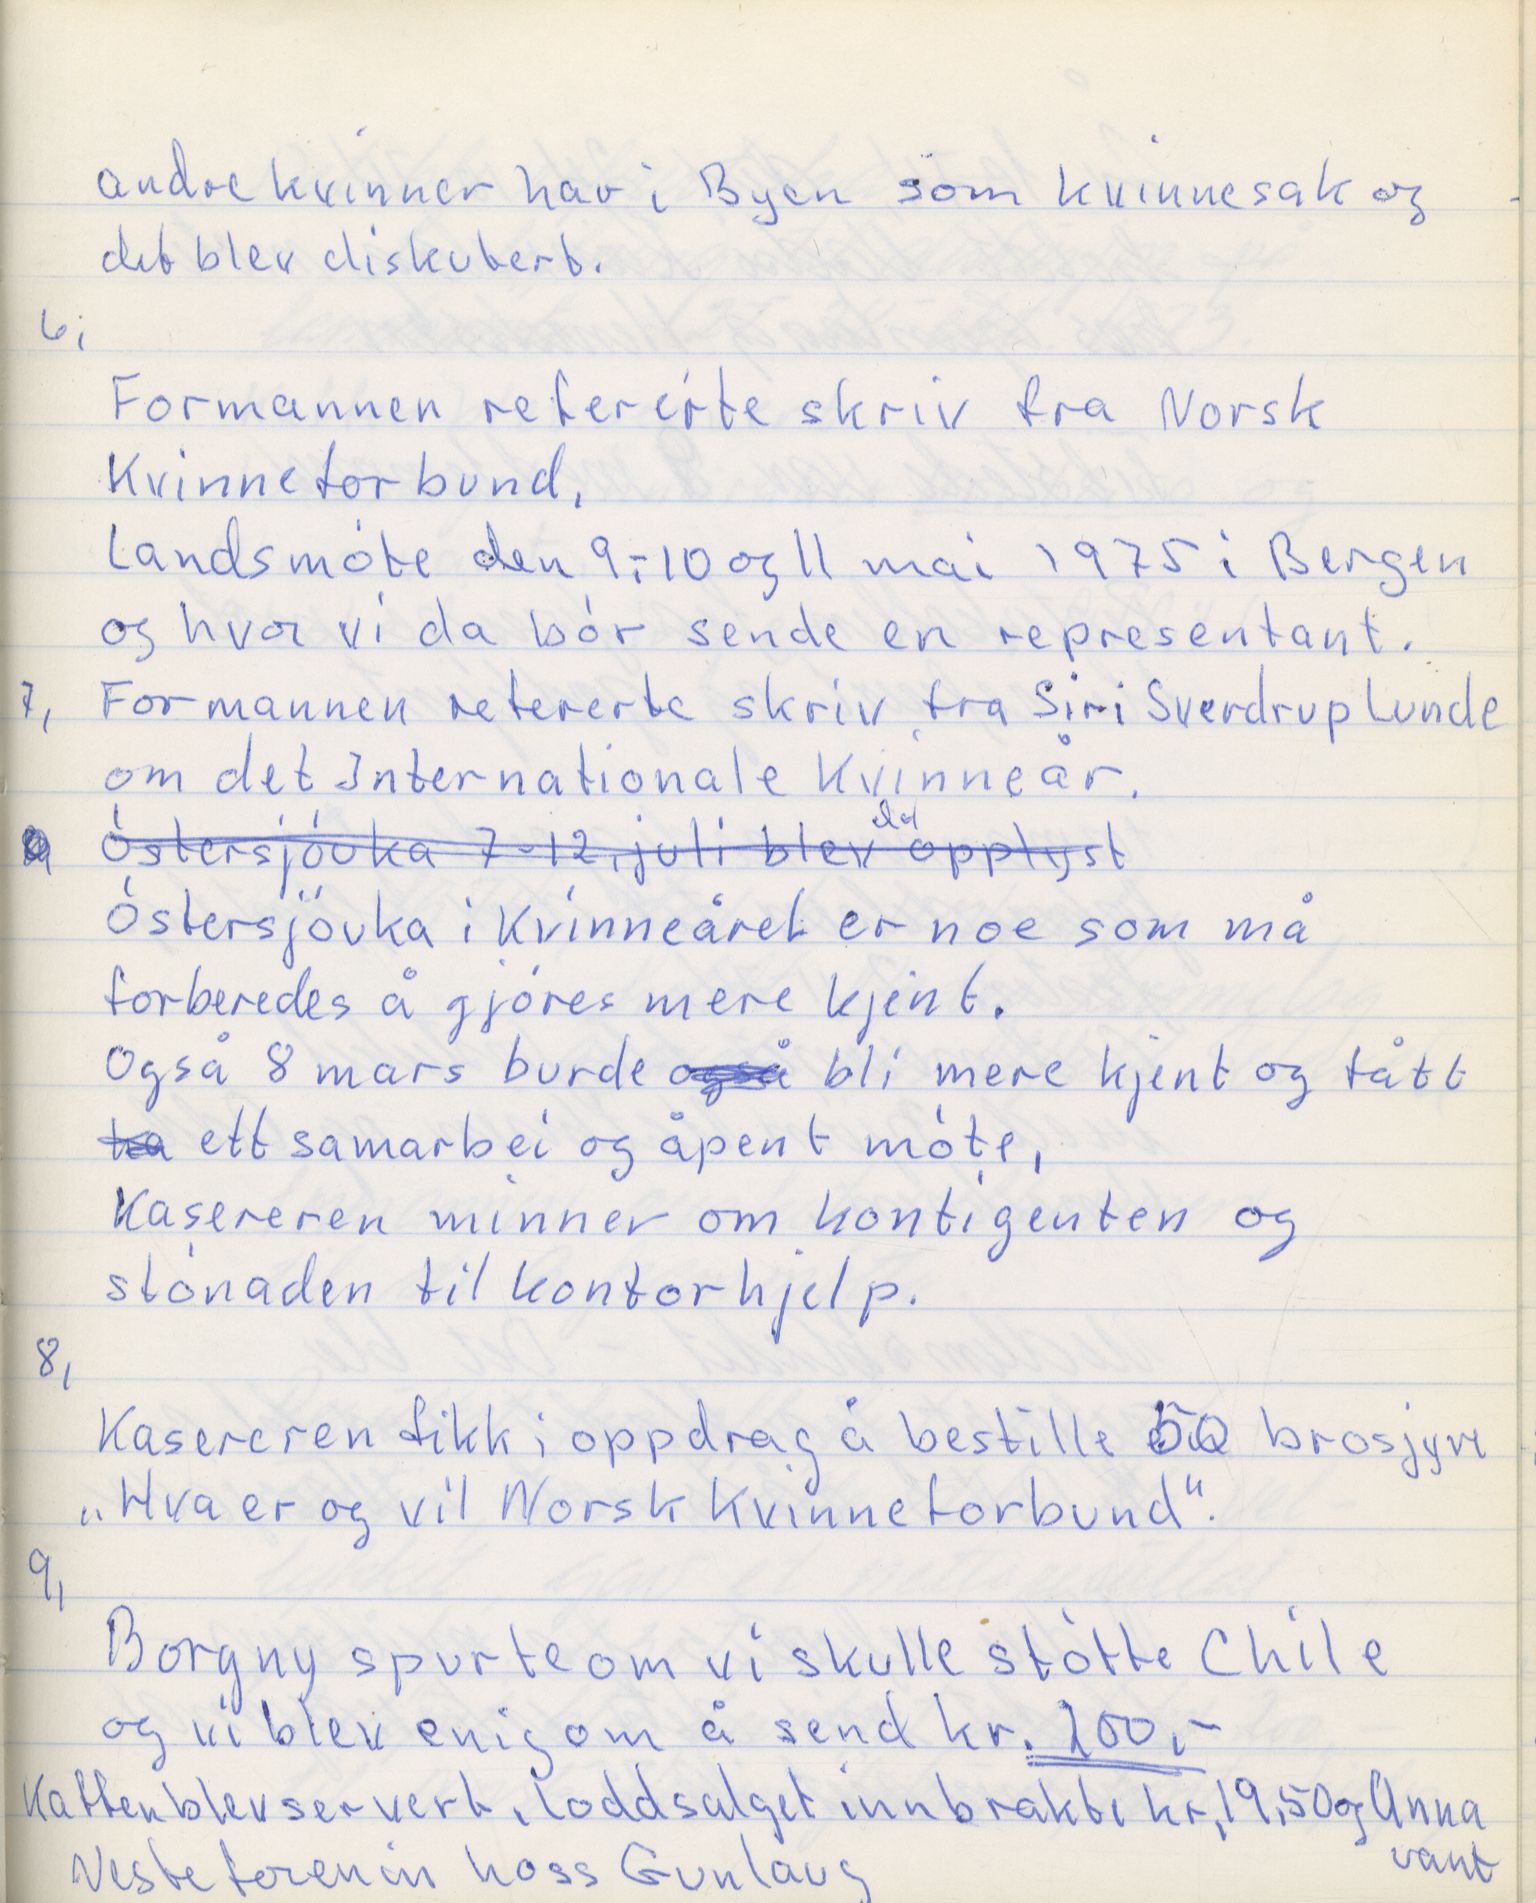 andre kvinner har i Byen som kvinnesak og
det blev diskutert.
6,
Formannen refererte skriv fra Norsk
Kvinneforbund,
Landsmóte den 9,-10 og 11 mai 1975 i Bergen
og hvor vi da bór sende en representant.
7, Formannen refererte skriv fra Siri Sverdrup Lunde
om det Internationale Kvinneår.
Óstersjóuka 7-12. juli blev opplyst
Óstersjöuka i Kvinneåret er noe som må
forberedes å gjóres mere kjent.
Også 8 mars burde også bli mere kjent og fått
ha ett samarbei og åpent móte,
Kasereren minner om kontigenten og
stónaden til kontorhjelp.
8,
Kasereren fikk i oppdrag å bestille 50 brosjyre
„Hva er og vil Norsk Kvinneforbund".
9,
Borgny spurte om vi skulle stótte Chile
og vi blev enig om å send kr. 200,-
Kaffen blev servert, loddsalget innbrakte kr, 19,50 og Anna
vant
Neste forenin hoss Gunlaug